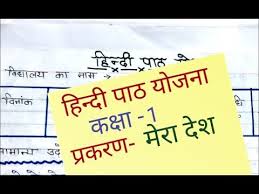 हिन्दी पाठ यो
विद्यालय का नाम
दिनांक
हिन्दी पाठ योजना
कक्षा -1
प्रकरण- मेरा देश
सामान्य उद्दे